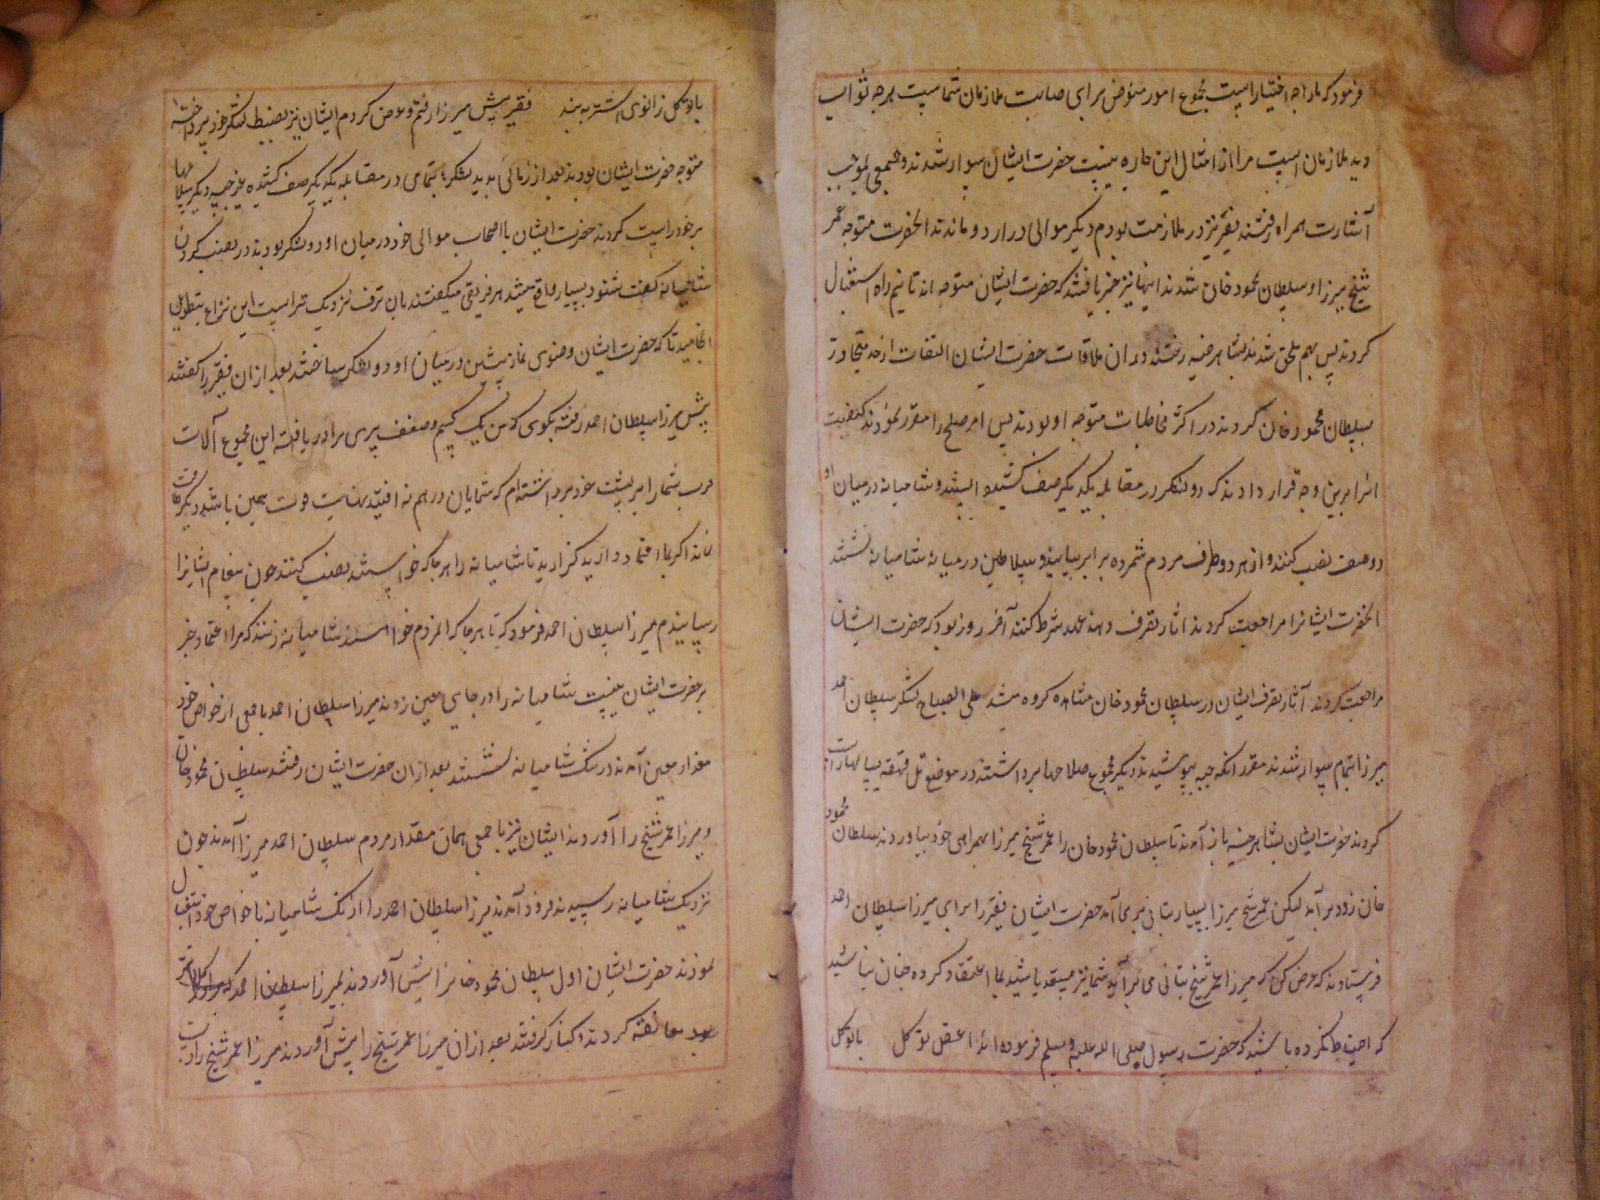 فرمود که ما را چه اختیار است مجموع امور مفوض برای صایب ملازمان شماست هرچه ثواب
دید ملازمان است مرا از امتثال این چاره نیست حضرت ایشان سوار شدند و جمعی بموجب
اشارت همراه رفتند فقیر نیز در ملازمت بودم دیگر موالی در اردو ماندند الحضرت متوجه عمر
شیخ میرزا و سلطان محمود خان شدند اینها نیز خبر یافتند که حضرت ایشان متوجه اند تا نیم راه استقبال
کردند پس بهم ملحق شدند بشاهرخیه رفتند در ان ملاقات حضرت ایشان التفات از حد متجاوز
بسلطان محمود خان کردند در اکثر مخاطبات متوجه او بودند پس امر صلح را مقرر نمودند کیفیت
انرا برین وجه قرار دادند که دو لشکر در مقابله یکدیگر صف کشیده ایستند و شامیانه در میان او
دو صف نصب کنند و از هر دو طرف مردم شمرده برابر بیایند و سلاطین در میانه شامیانه نشینند
الحضرت ایشانرا مراجعت کردند آثار تصرف و عهد شرط کنند آخر روز بود که حضرت ایشان
مراجعت کردند آثار تصرف ایشان در سلطان محمود خان مشاهده کرده میشد علی الصباح لشکر سلطان احمد
میرزا بتمام سوار شدند مقرر آنکه جبه پوشیدند دیگر مجموع صلاحها برداشتند در موضع تل
کردند حضرت ایشان بشاهرخیه باز آمدند تا سلطان محمود خان را عمر شیخ میرزا بهمراهی خود بیاوردند سلطان محمود
خان زود برآمد لیکن عمر شیخ میرزا بسیار بتانی برمی آمد حضرت ایشان فقیر را برای میرزا سلطان احمد
فرستادند که عرض کن که میرزا عمر شیخ بتانی می برآید شما نیز مستعد باشید بما اعتقاد کرده چنان نباشید
که احتیاط نکرده باشید که حضرت رسول صلی الله علیه وسلم فرموده اند اعقل توکل
باتوکل
باتوکل زانوی اشتر به بند فقیر پیش میرزا رفتم و عرض کردم ایشان نیز بضبط لشکر خود پرداخته
متوجه حضرت ایشان بودند بعد از زمانی بدید لشکرها بتمامی در مقابله یکدیگر صف کشیده بغیر جبه دیگر سلاحها
بر خود راست کردند حضرت ایشان با اصحاب موالی خود در میان او دو لشکر بودند در نصب کردن
شامیانه گفت شنود بسیار واقع میشد هر فریقی میگفتند بان طرف نزدیک تر است این نزاع بتطویل
انجامید تا که حضرت ایشان وضوی نماز پیشین در میان او دو لشکر ساختند بعد از ان فقیر را گفتند
پیش میرزا سلطان احمد رفته بگوی که من یک کسیم وضعف پیری مرا دریافته این مجموع آلات
حرب شما را بر پشت خود برداشته ام که شمایان درهم نه افتید نهایت قوت همین باشد دیگر طاقت
نمانده اگر بما اعتماد دارید گذارید تا شامیانه را هر جا که خواستند نصب کنند چون پیغام ایشانرا
رسانیدم میرزا سلطان احمد فرمود که تا هر جا که المردم خواستند شامیانه زنند که مرا اعتماد جز
بر حضرت ایشان نیست شامیانه را در جایی معین زدند میرزا سلطان احمد با جمعی از خواص خود
مقدار معین آمدند در تنگ شامیانه نشستند بعد از ان حضرت ایشان رفتند سلطان محمود خان
و میرزا عمر شیخ را آوردند ایشان نیز با جمعی همان مقدار مردم سلطان احمد میرزا آمدند چون
نزدیک شامیانه رسیدند فرود آمدند میرزا سلطان احمد را از تنگ شامیانه با خواص خود استقبال
نمودند حضرت ایشان اول سلطان محمود خانرا پیش آوردند بمیرزا سلطان احمد که
بود معانقه کردند کنار گرفتند بعد از ان میرزا عمر شیخ را پیش آوردند میرزا عمر شیخ را